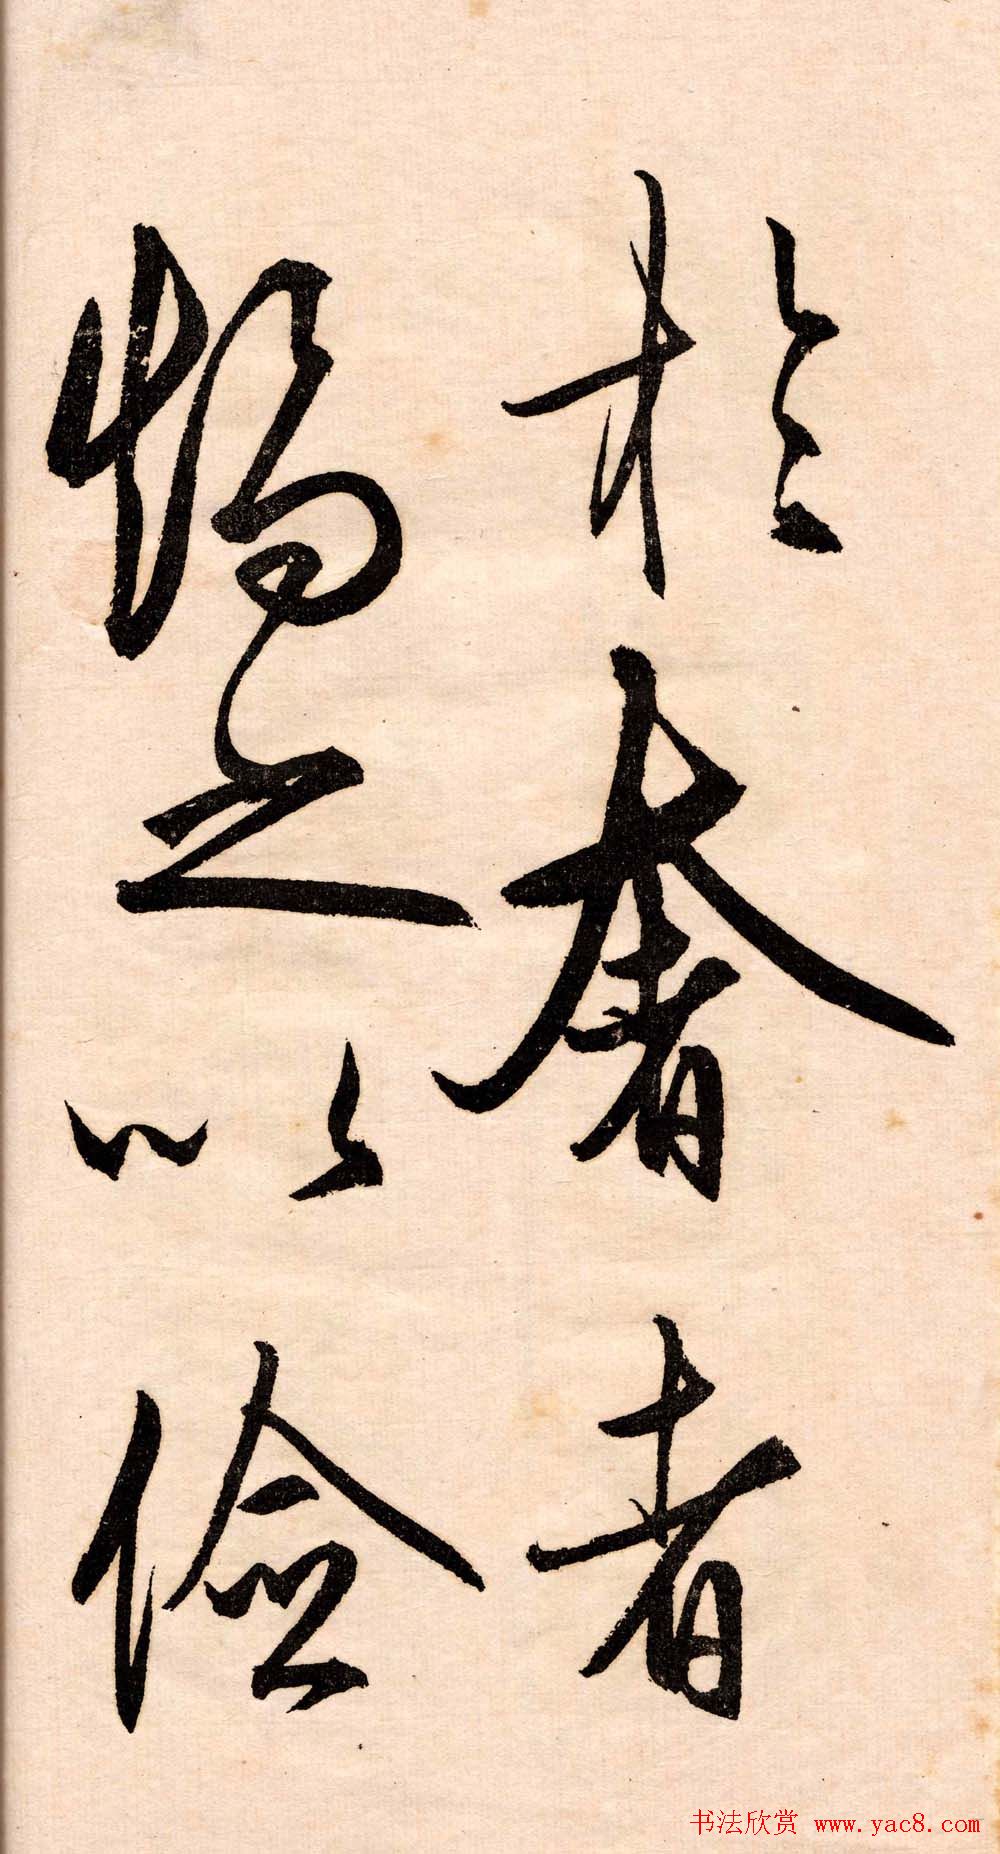 於奢者
之以儉
書法欣赏 www.yac8.com